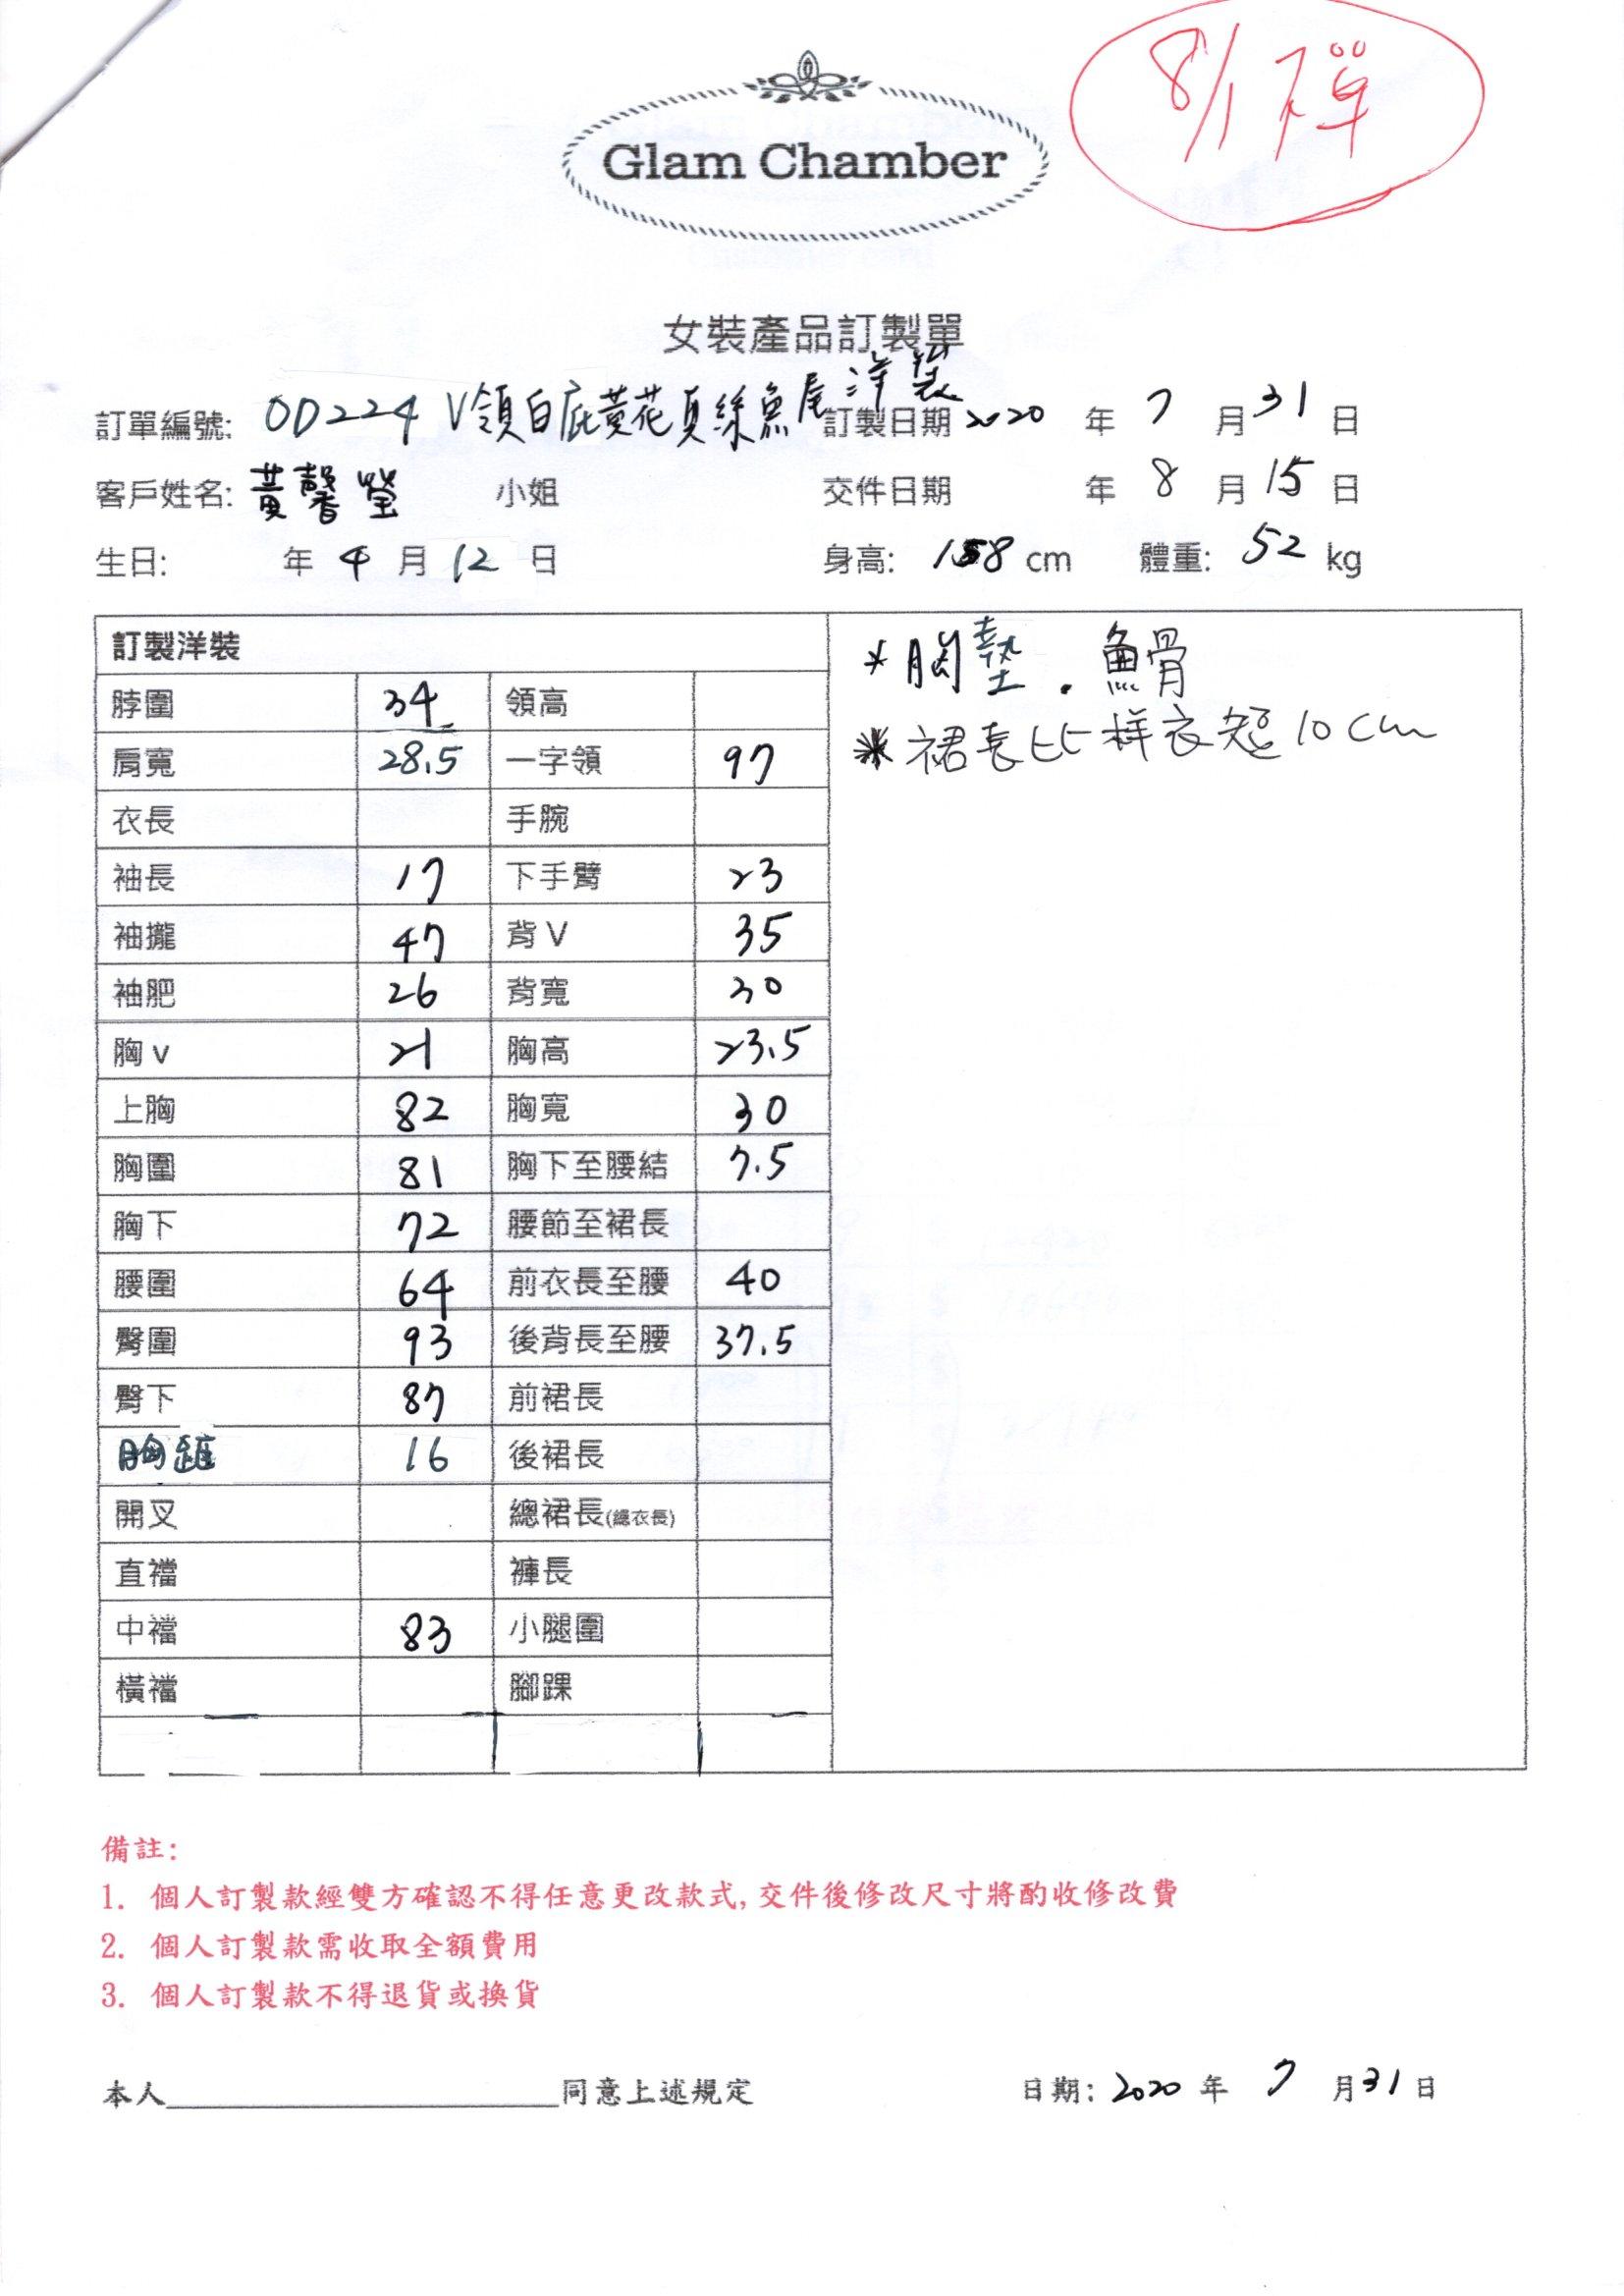 8/1 下單
Glam Chamber
女裝產品訂製單
訂單編號: OD224 V領白庇黃花真絲魚尾洋裝 訂製日期 2020 年 7 月 31 日
客戶姓名: 黃馨瑩 小姐 交件日期 年 8 月 15 日
生日: 年 4 月 12 日 身高: 158 cm 體重: 52 kg
訂製洋裝
脖圍 34 領高
肩寬 28.5 一字領 97
衣長 手腕
袖長 17 下手臂 23
袖攏 47 背V 35
袖肥 26 背寬 30
胸v 21 胸高 23.5
上胸 82 胸寬 30
胸圍 81 胸下至腰結 7.5
胸下 72 腰節至裙長
腰圍 64 前衣長至腰 40
臀圍 93 後背長至腰 37.5
臀下 87 前裙長
胸距 16 後裙長
開叉 總裙長(總衣長)
直襠 褲長
中襠 83 小腿圍
橫襠 腳踝
*胸墊.魚骨
*裙長比样衣短10cm
備註:
1. 個人訂製款經雙方確認不得任意更改款式,交件後修改尺寸將酌收修改費
2. 個人訂製款需收取全額費用
3. 個人訂製款不得退貨或換貨
本人 同意上述規定 日期: 2020 年 7 月 31 日